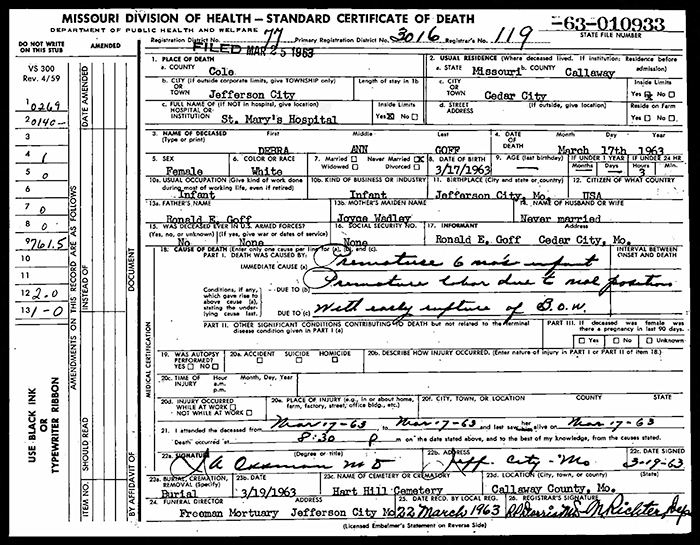 MISSOURI DIVISION OF HEALTH — STANDARD CERTIFICATE OF DEATH
-63-010933
DEPARTMENT OF PUBLIC HEALTH AND WELFARE
Registration District No. 77 Primary Registration District No. 3016 Registrar's No. 119
STATE FILE NUMBER
FILED MAR 25 1963
DO NOT WRITE ON THIS STUB
AMENDED
VS 300
Rev. 4/59
1 0269
2 0140-
3
4 1
5 0
6
7 0
8 0
9 761.5
10
11
12 2.0
13 1-0
USE BLACK INK
OR
TYPEWRITER RIBBON
DATE AMENDED
AMENDMENTS ON THIS RECORD ARE AS FOLLOWS
INSTEAD OF
SHOULD READ
ITEM NO.
DOCUMENT
BY AFFIDAVIT OF
MEDICAL CERTIFICATION
1. PLACE OF DEATH
a. COUNTY
Cole
2. USUAL RESIDENCE (Where deceased lived. If institution: Residence before admission)
a. STATE Missouri b. COUNTY Callaway
b. CITY (If outside corporate limits, give TOWNSHIP only)
OR TOWN
Jefferson City
Length of stay in 1b
c. CITY OR TOWN
Cedar City
Inside Limits
Yes No
c. FULL NAME OF (If NOT in hospital, give location)
HOSPITAL OR INSTITUTION
St. Mary's Hospital
Inside Limits
Yes No
d. STREET ADDRESS
(If outside, give location)
Reside on Farm
Yes No
3. NAME OF DECEASED
(Type or print)
First Middle Last
DEBRA ANN GOFF
4. DATE OF DEATH
Month Day Year
March 17th 1963
5. SEX
Female
6. COLOR OR RACE
White
7. Married Never Married
Widowed Divorced
8. DATE OF BIRTH
3/17/1963
9. AGE (last birthday)
IF UNDER 1 YEAR
Months Days
IF UNDER 24 HR
Hours Min.
3
10a. USUAL OCCUPATION (Give kind of work done during most of working life, even if retired)
Infant
10b. KIND OF BUSINESS OR INDUSTRY
Infant
11. BIRTHPLACE (City and state or country)
Jefferson City, Mo.
12. CITIZEN OF WHAT COUNTRY
USA
13a. FATHER'S NAME
Ronald E. Goff
13b. MOTHER'S MAIDEN NAME
Joyce Wadley
14. NAME OF HUSBAND OR WIFE
Never married
15. WAS DECEASED EVER IN U.S. ARMED FORCES?
(Yes, no, or unknown) (If yes, give war or dates of service)
No None
16. SOCIAL SECURITY NO.
None
17. INFORMANT Address
Ronald E. Goff Cedar City, Mo.
18. CAUSE OF DEATH (Enter only one cause per line for (a), (b), and (c).)
PART I. DEATH WAS CAUSED BY:
INTERVAL BETWEEN ONSET AND DEATH
IMMEDIATE CAUSE (a) Premature 6 mo's infant
Conditions, if any, which gave rise to above cause (a), stating the underlying cause last.
DUE TO (b) Premature labor due to mal position
DUE TO (c) With early rupture of B.O.W.
PART II. OTHER SIGNIFICANT CONDITIONS CONTRIBUTING TO DEATH but not related to the terminal disease condition given in PART I (a)
PART III. If deceased was female was there a pregnancy in last 90 days.
Yes No Unknown
19. WAS AUTOPSY PERFORMED?
YES NO
20a. ACCIDENT SUICIDE HOMICIDE
20b. DESCRIBE HOW INJURY OCCURRED. (Enter nature of injury in PART I or PART II of item 18.)
20c. TIME OF INJURY
Hour a.m. p.m.
Month, Day, Year
20d. INJURY OCCURRED
WHILE AT WORK
NOT WHILE AT WORK
20e. PLACE OF INJURY (e.g., in or about home, farm, factory, street, office bldg., etc.)
20f. CITY, TOWN, OR LOCATION COUNTY STATE
21. I attended the deceased from Mar 17-63 to Mar 17-63 and last saw her alive on Mar 17-63
Death occurred at 8:30 p m on the date stated above, and to the best of my knowledge, from the causes stated.
22a. SIGNATURE (Degree or title)
MD
22b. ADDRESS
Jeff. City - Mo
22c. DATE SIGNED
3-19-63
23a. BURIAL, CREMATION, REMOVAL (Specify)
Burial
23b. DATE
3/19/1963
23c. NAME OF CEMETERY OR CREMATORY
Hart Hill Cemetery
23d. LOCATION (City, town, or county) (State)
Callaway County, Mo.
24. FUNERAL DIRECTOR ADDRESS
Freeman Mortuary Jefferson City Mo
25. DATE RECD. BY LOCAL REG.
22 March 1963
26. REGISTRAR'S SIGNATURE
Richter, Dep
(Licensed Embalmer's Statement on Reverse Side)